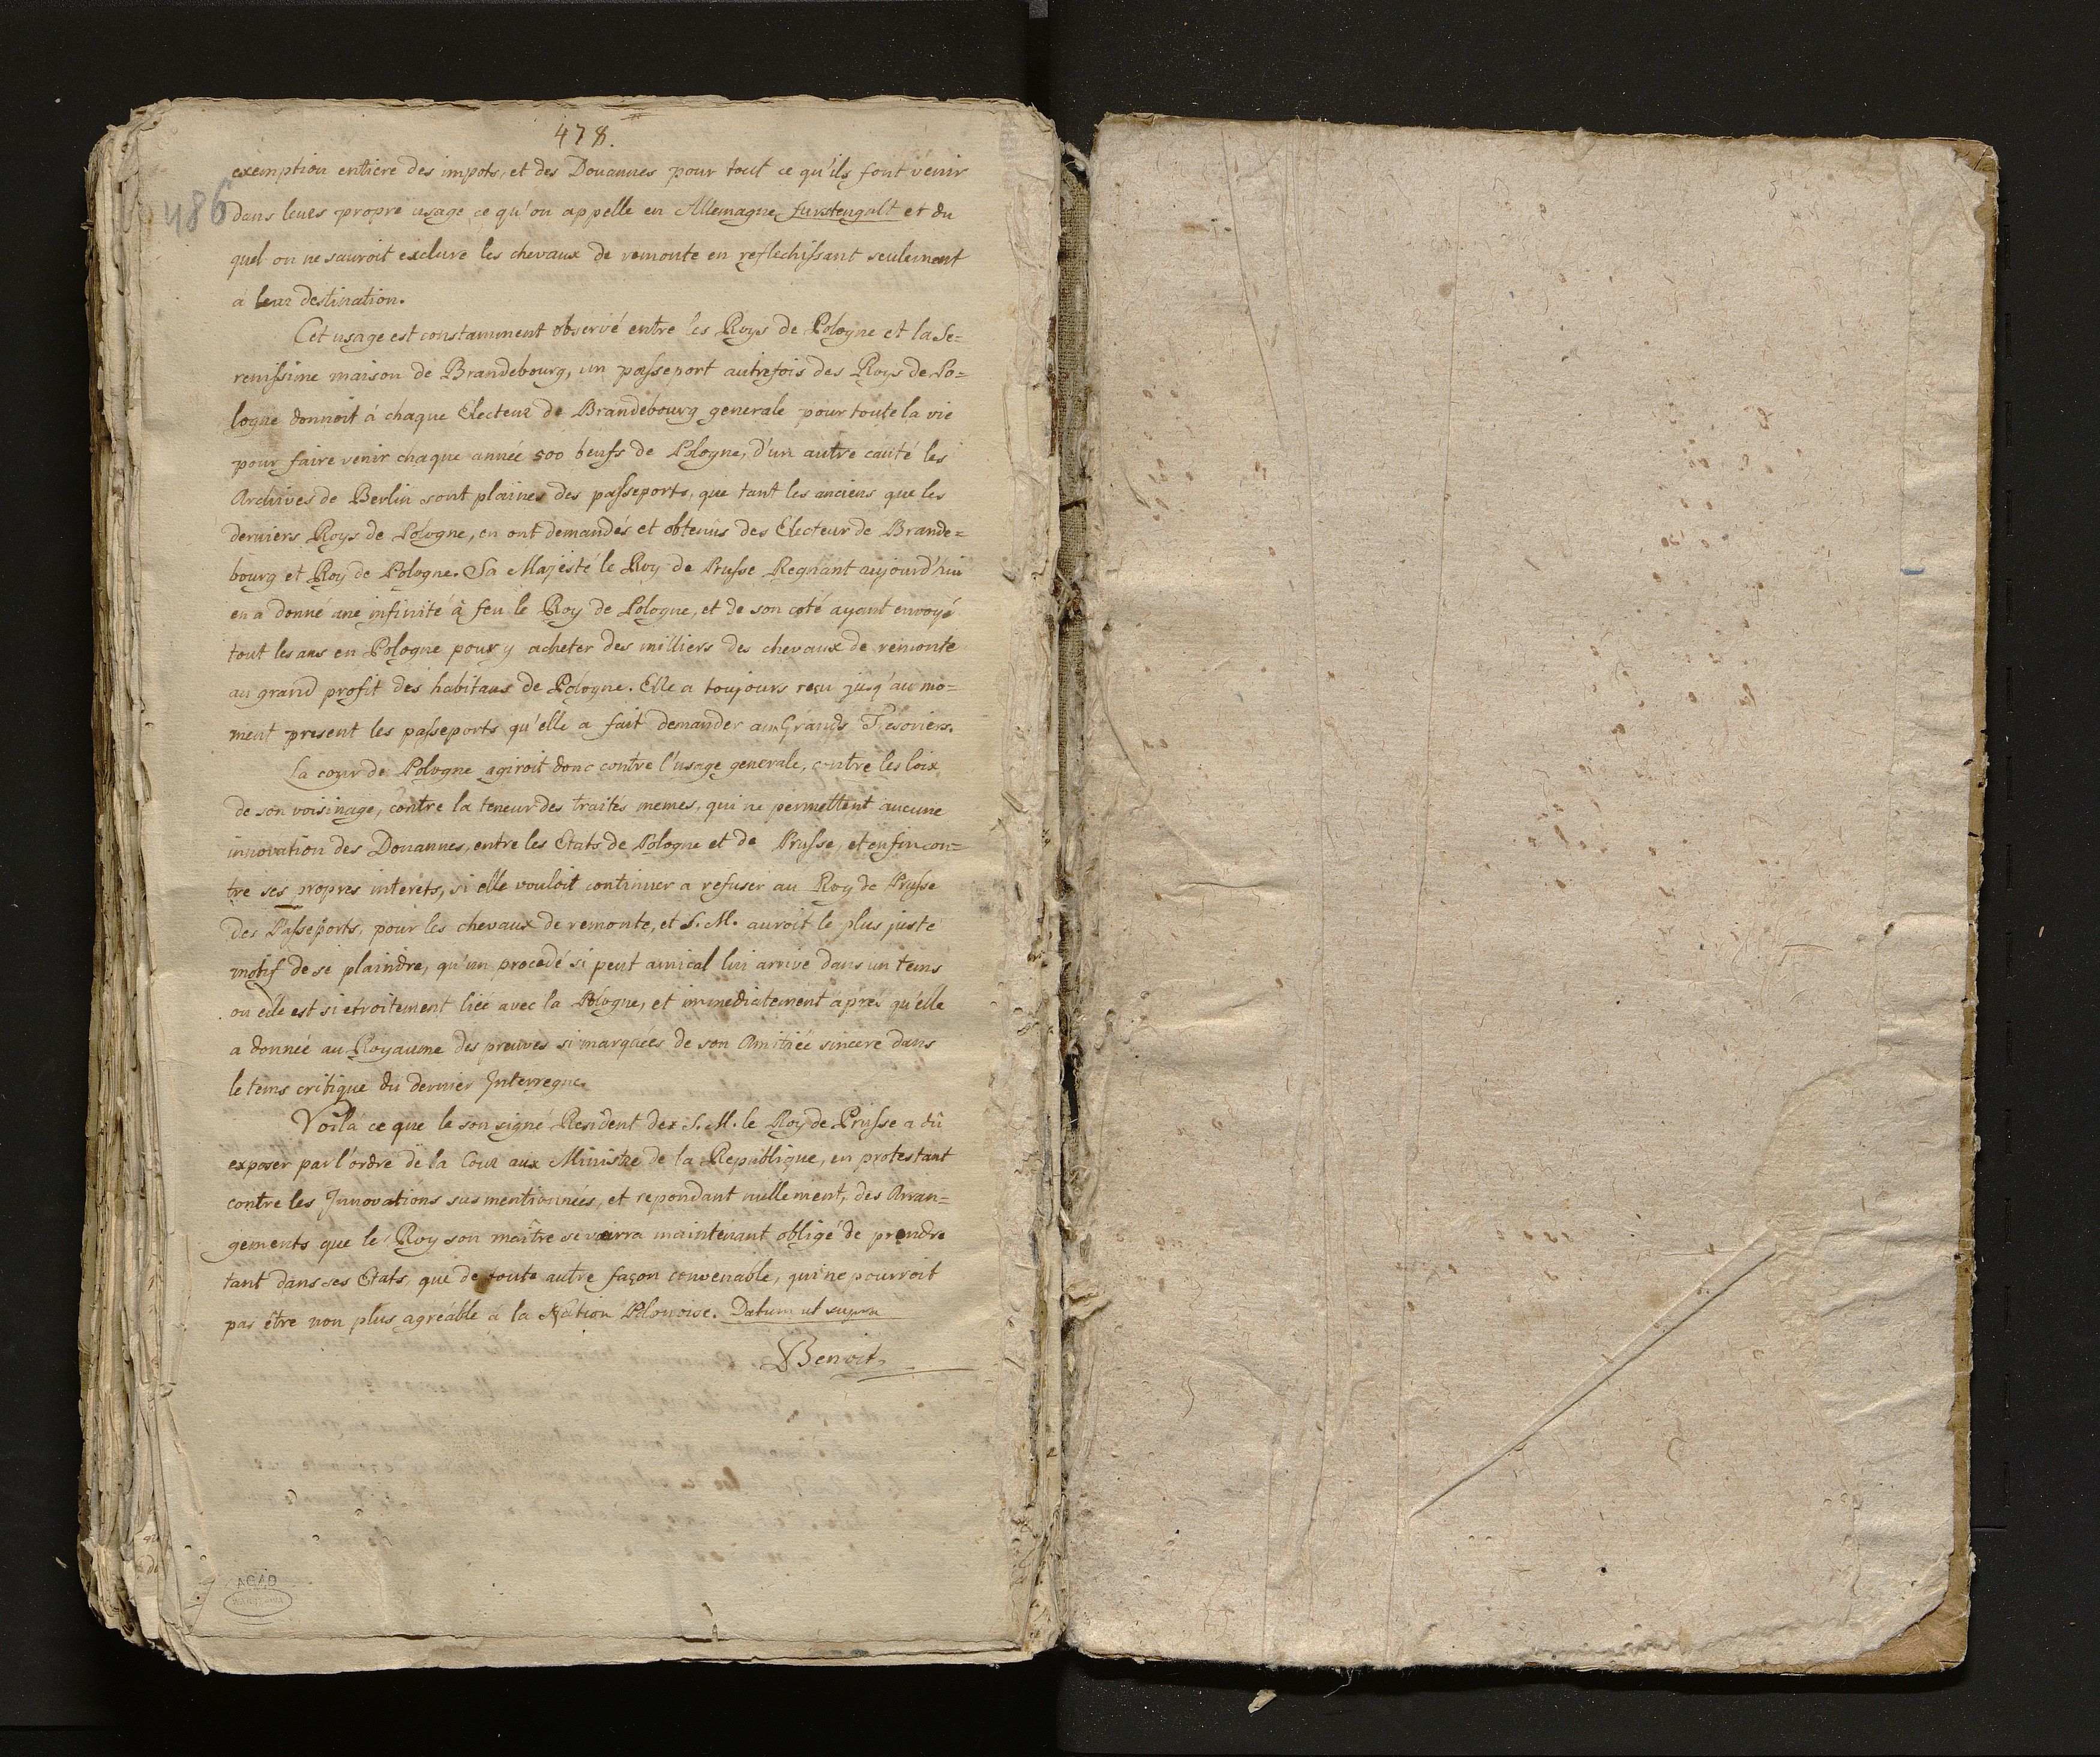 478.
486
exemption entiere des impots, et des Douannes pour tout ce qu'ils font venir
dans leurs propre usage ce qu'on appelle en Allemagne furstengult et du
quel on ne sauroit exclure les chevaux de remonte en reflechissant seulement
á leur destination.
Cet usage est constamment observé entre les Roys de Pologne et la Se=
renissime maison de Brandebourg, un passeport autrefois des Roys de Po=
logne donnoit á chaque Electeur de Brandebourg generale pour toute la vie
pour faire venir chaque année 500 beufs de Pologne, d'un autre cauté les
Archives de Berlin sont plaines des passeports, que tant les anciens que les
derniers Roys de Pologne, en ont demandés et obtenus des Electeur de Brande=
bourg et Roy de Pologne. Sa Majesté le Roy de Prusse Regnant aujourd'hui
en a donné ane infinité á feu le Roy de Pologne, et de son coté ayant envoyé
tout les ans en Pologne pour y acheter des milliers des chevaux de remonte
au grand profit des habitans de Pologne. Elle a toujours reçu jusq'au mo=
ment present les passeports qu'elle a fait demander aux Grands Tresoriers.
La cour de Pologne agiroit donc contre l'usage generale, contre les loix
de son voisinage, contre la teneur des traités memes, qui ne permettent aucune
innovation des Douannes, entre les Etats de Pologne et de Prusse, et enfin con=
tre ses propres interets, si elle vouloit continuer a refuser au Roy de Prusse
des Passeports, pour les chevaux de remonte, et S. M. auroit le plus juste
motif de se plaindre, qu'un procedé si peut amical lui arrive dans un tems
ou elle est si etroitement liée avec la Pologne, et immediatement apres qu'elle
a donnée au Royaume des preuves si marquées de son Amitiée sincere dans
le tems critique du dernier Interregne.
Voila ce que le son signé Resident des S. M. le Roy de Prusse a dû
exposer par l'ordre de la Cour aux Ministre de la Republique, en protestant
contre les Innovations sus mentionnées, et repondant nullement, des Arran=
gements que le Roy son maitre se voirra maintenant obligé de prendre
tant dans ses Etats, que de toute autre façon convenable, qui ne pourroit
pas être non plus agréable á la Nation Polonoise. Datum ut supra
Benoit
AGAD